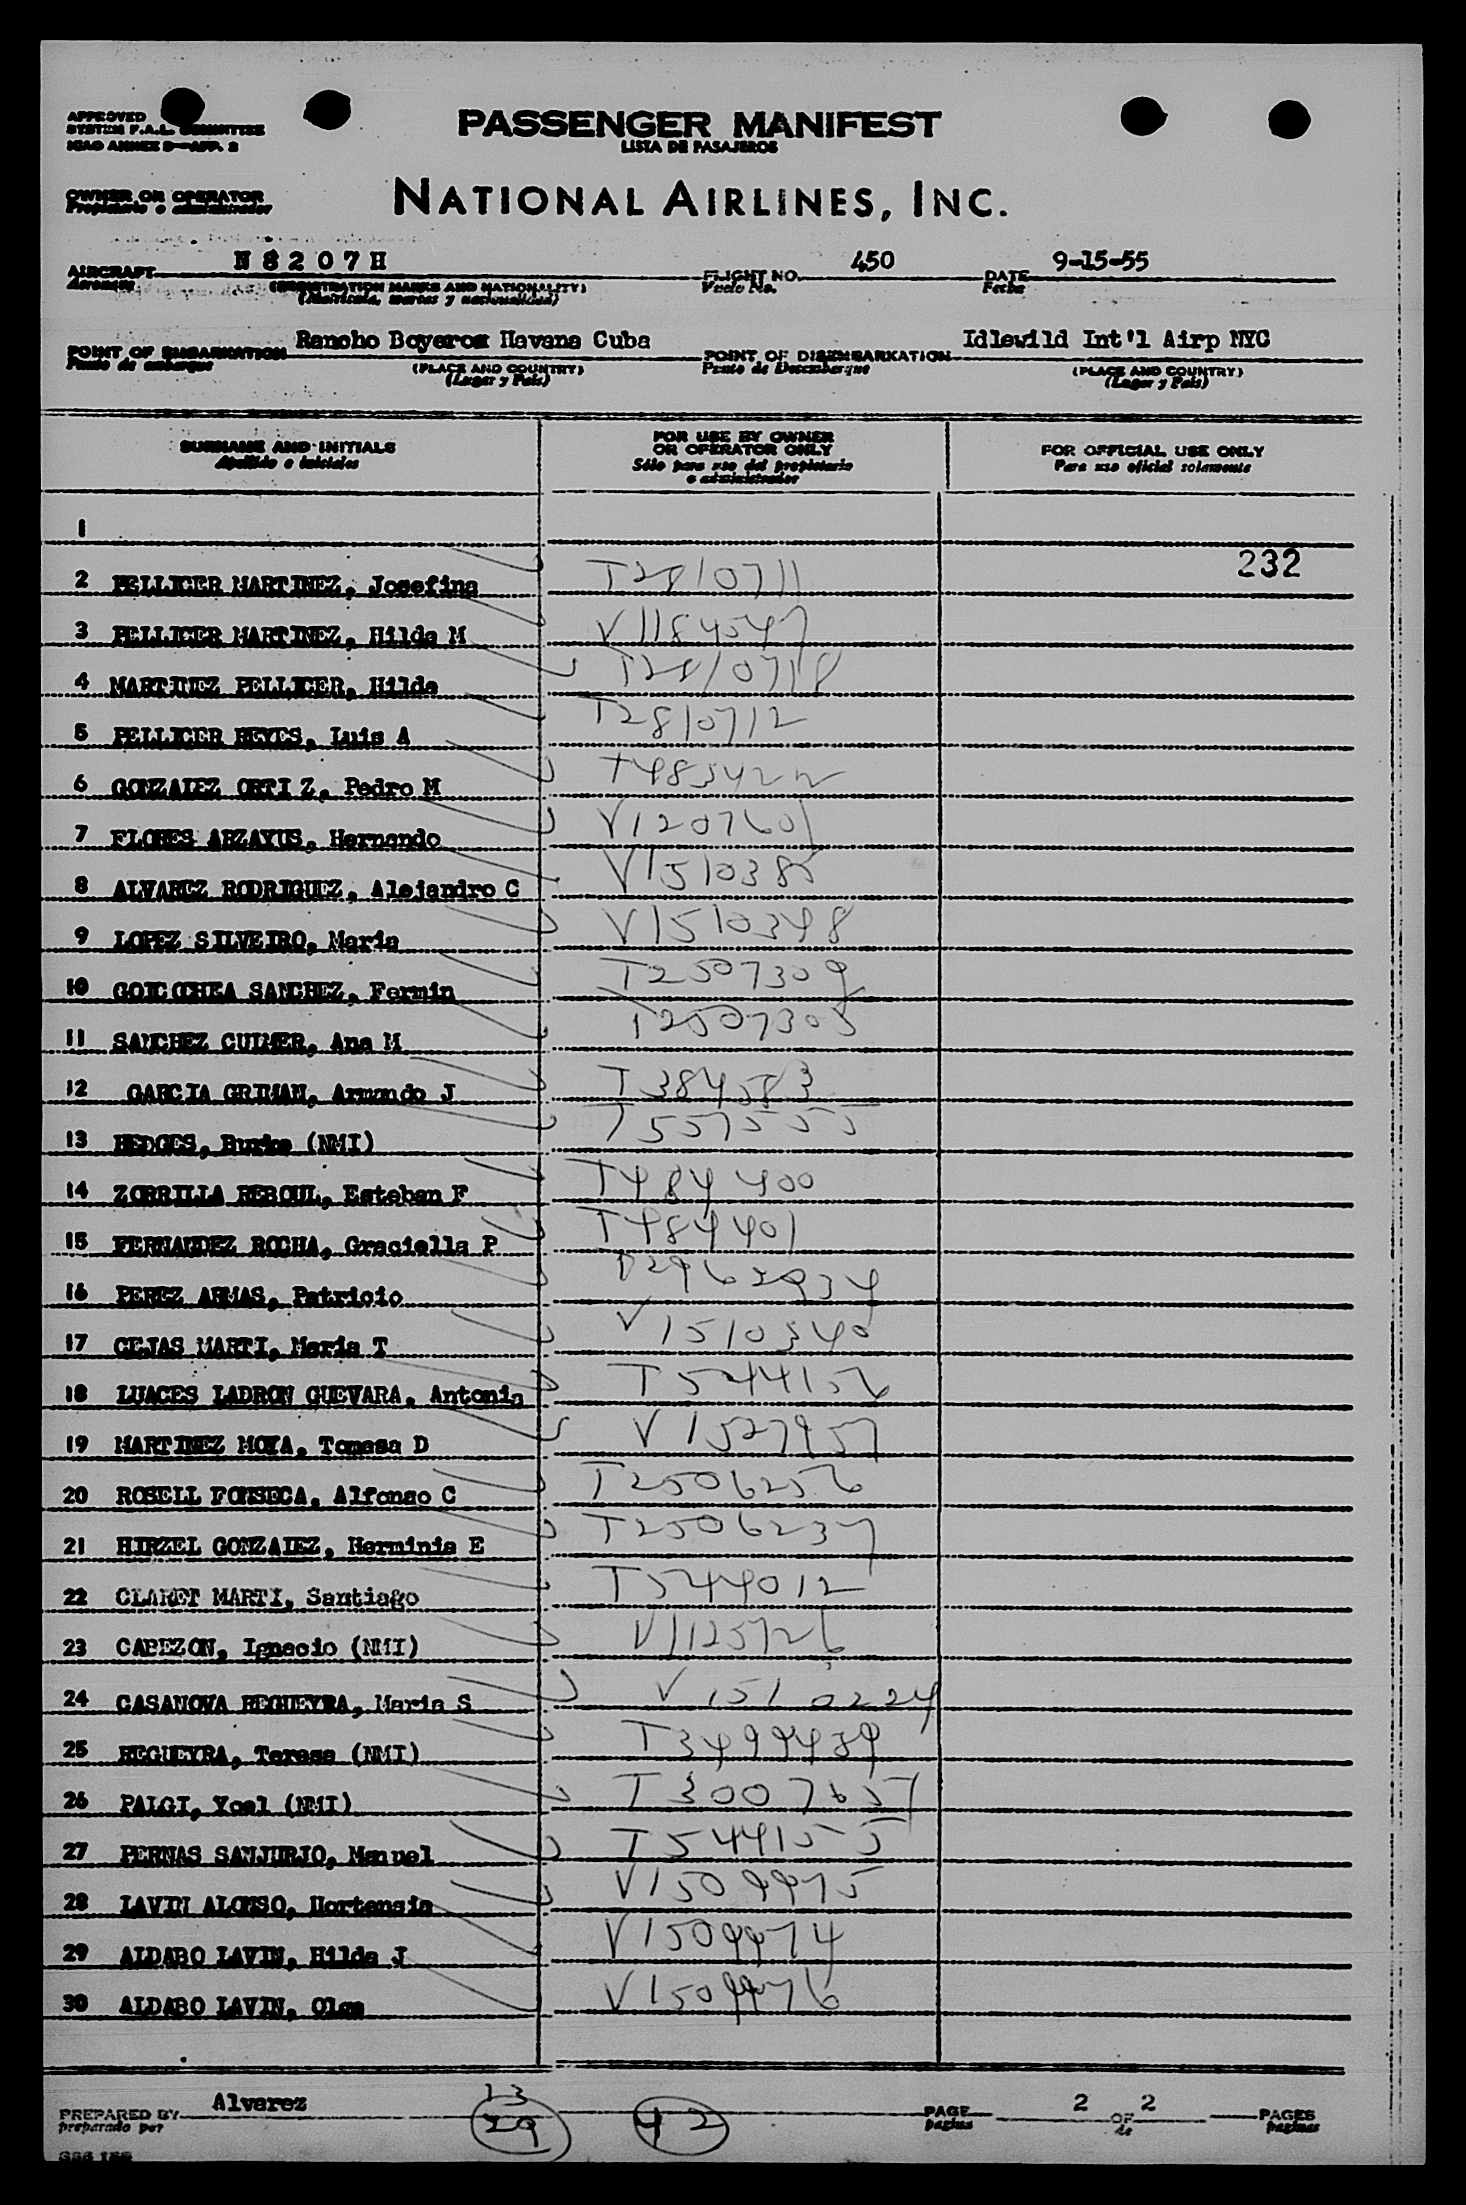 APPROVED
SYSTEM F.A.L. COMMITTEE
ICAO ANNEX 9—APP. 2
PASSENGER MANIFEST
LISTA DE PASAJEROS
OWNER OR OPERATOR
Propietario o administrador
NATIONAL AIRLINES, INC.
AIRCRAFT N 8 2 0 7 H FLIGHT NO. 450 DATE 9-15-55
Aeronave (REGISTRATION MARKS AND NATIONALITY) Vuelo No. Fecha
(Matricula, marcas y nacionalidad)
POINT OF EMBARKATION Rancho Boyeros Havana Cuba POINT OF DISEMBARKATION Idlewild Int'l Airp NYC
Punto de embarque (PLACE AND COUNTRY) Punto de Desembarque (PLACE AND COUNTRY)
(Lugar y Pais) (Lugar y Pais)
SURNAME AND INITIALS FOR USE BY OWNER OR OPERATOR ONLY FOR OFFICIAL USE ONLY
Apellido e iniciales Sólo para uso del propietario o administrador Para uso oficial solamente
1
232
2 PELLICER MARTINEZ, Josefina T2810711
3 PELLICER MARTINEZ, Hilda M V1184547
4 MARTINEZ PELLICER, Hilda T2810718
5 PELLICER REYES, Luis A T2810712
6 GONZALEZ ORTI Z, Pedro M T483422
7 FLORES ARZAYUS, Hernando V1207601
8 ALVAREZ RODRIGUEZ, Alejandro C V1510385
9 LOPEZ SILVEIRO, Maria V1510348
10 GOICOCHEA SANCHEZ, Fermin T2507309
11 SANCHEZ CULMER, Ana M T2507308
12 GARCIA GRIMAN, Armando J T384583
13 HEDGES, Burke (NMI) T557555
14 ZORRILLA REBOUL, Esteban F T484400
15 FERNANDEZ ROCHA, Graciella P T484401
16 PEREZ ARMAS, Patricio
17 CEJAS MARTI, Maria T V1510340
18 LUACES LADRON GUEVARA, Antonia T544156
19 MARTINEZ MOYA, Tomasa D V1527957
20 ROSELL FONSECA, Alfonso C T2506256
21 HIRZEL GONZALEZ, Herminia E T2506237
22 CLARET MARTI, Santiago T544012
23 CABEZON, Ignacio (NMI) V1125726
24 CASANOVA REGUEYRA, Maria S V1510224
25 REGUEYRA, Teresa (NMI) T3499439
26 PALGI, Yoel (NMI) T3007657
27 PERNAS SANJURJO, Manuel T544155
28 LAVIN ALONSO, Hortensia V1509975
29 ALDABO LAVIN, Hilda J V1509974
30 ALDABO LAVIN, Olga V1509976
PREPARED BY Alvarez 13 29 42 PAGE 2 OF 2 PAGES
preparado por pagina de paginas